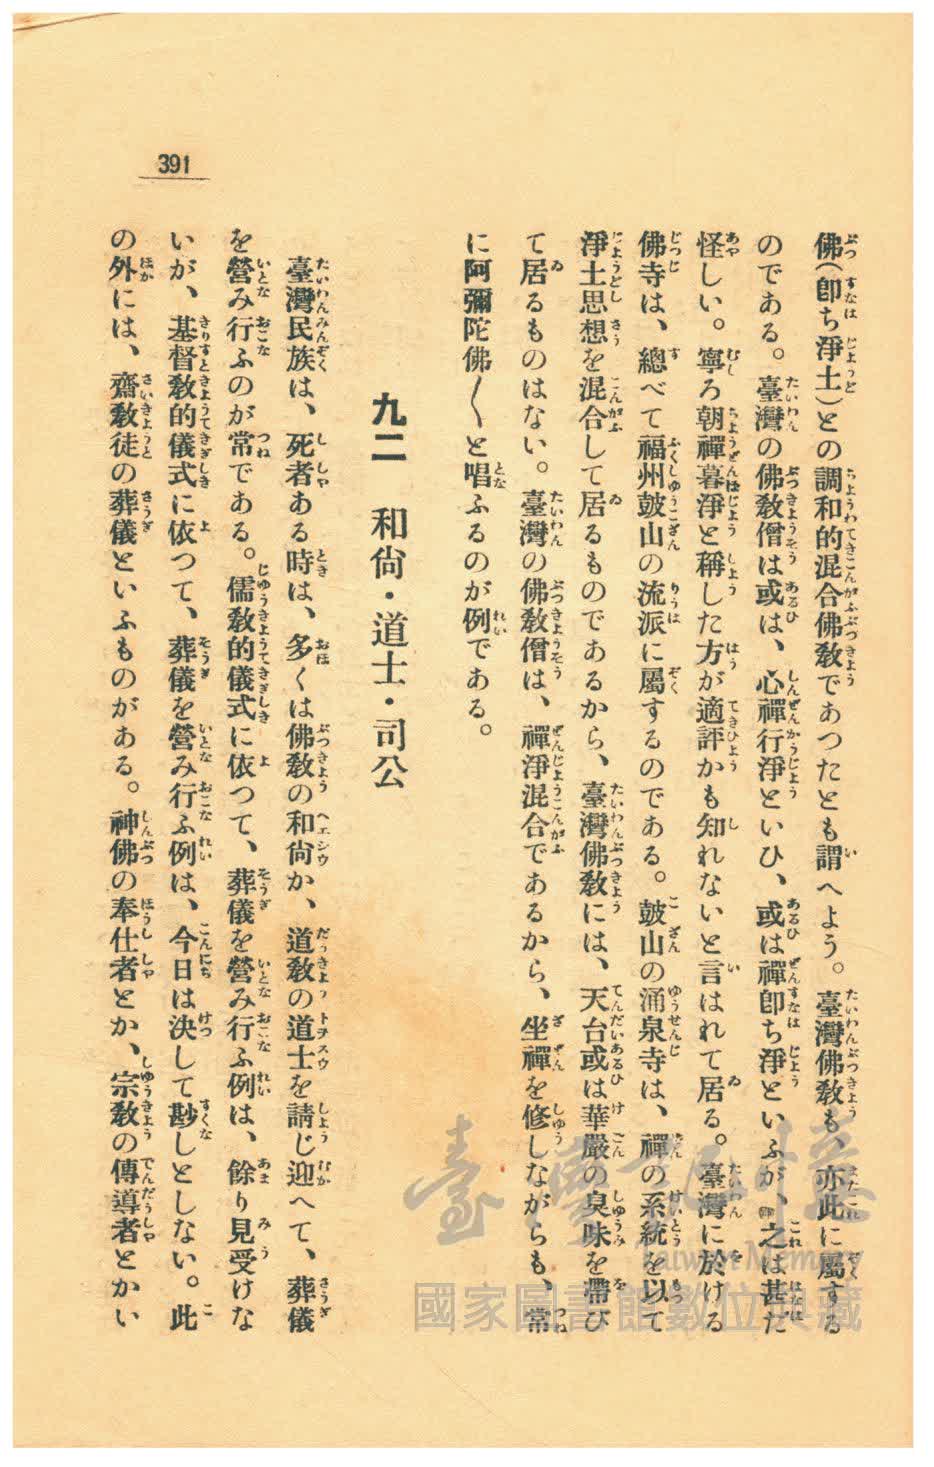 391
佛(卽ち淨土)との調和的混合佛敎であつたとも謂へよう。臺灣佛敎も、亦此に屬する
のである。臺灣の佛敎僧は或は、心禪行淨といひ、或は禪卽ち淨といふが、之は甚だ
怪しい。寧ろ朝禪暮淨と稱した方が適評かも知れないと言はれて居る。臺灣に於ける
佛寺は、總べて福州皷山の流派に屬するのである。皷山の涌泉寺は、禪の系統を以て
淨土思想を混合して居るものであるから、臺灣佛敎には、天台或は華嚴の臭味を帶び
て居るものはない。臺灣の佛敎僧は、禪淨混合であるから、坐禪を修しながらも、常
に阿彌陀佛〱と唱ふるのが例である。
九二 和尙・道士・司公
臺灣民族は、死者ある時は、多くは佛敎の和尙か、道敎の道士を請じ迎へて、葬儀
を營み行ふのが常である。儒敎的儀式に依つて、葬儀を營み行ふ例は、餘り見受けな
いが、基督敎的儀式に依つて、葬儀を營み行ふ例は、今日は決して尠しとしない。此
の外には、齋敎徒の葬儀といふものがある。神佛の奉仕者とか、宗敎の傳導者とかい
臺灣記憶
Taiwan Memory
國家圖書館數位典藏